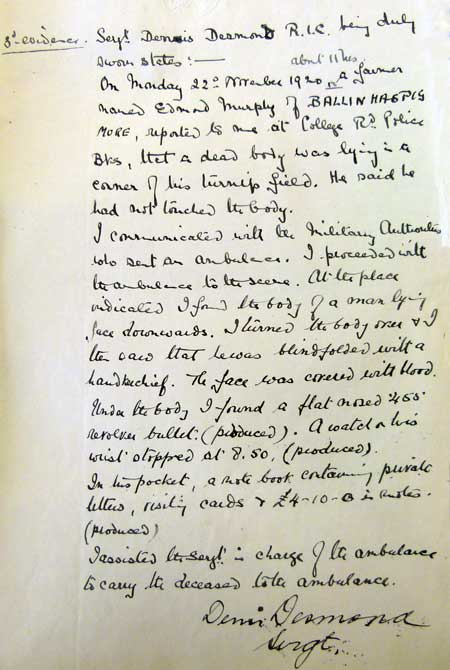 3rd evidence. Sergt. Dennis Desmond R.I.C. being duly
sworn states: —
about 11 hrs
On Monday 22nd November 1920 a farmer
named Edmond Murphy of BALLINHASPIG
MORE, reported to me at College Rd. Police
Bks, that a dead body was lying in a
corner of his turnip field. He said he
had not touched the body.
I communicated with the Military Authorities
who sent an ambulance. I proceeded with
the ambulance to the scene. At the place
indicated I found the body of a man lying
face downwards. I turned the body over & I
then saw that he was blindfolded with a
handkerchief. The face was covered with blood.
Under the body I found a flat nosed .455
revolver bullet. (produced). A watch on his
wrist stopped at 8.50. (produced).
In his pocket, a note book containing private
letters, visiting cards & £4-10-0 in notes.
(produced)
I assisted the Sergt. in charge of the ambulance
to carry the deceased to the ambulance.
Denis Desmond
Sergt.